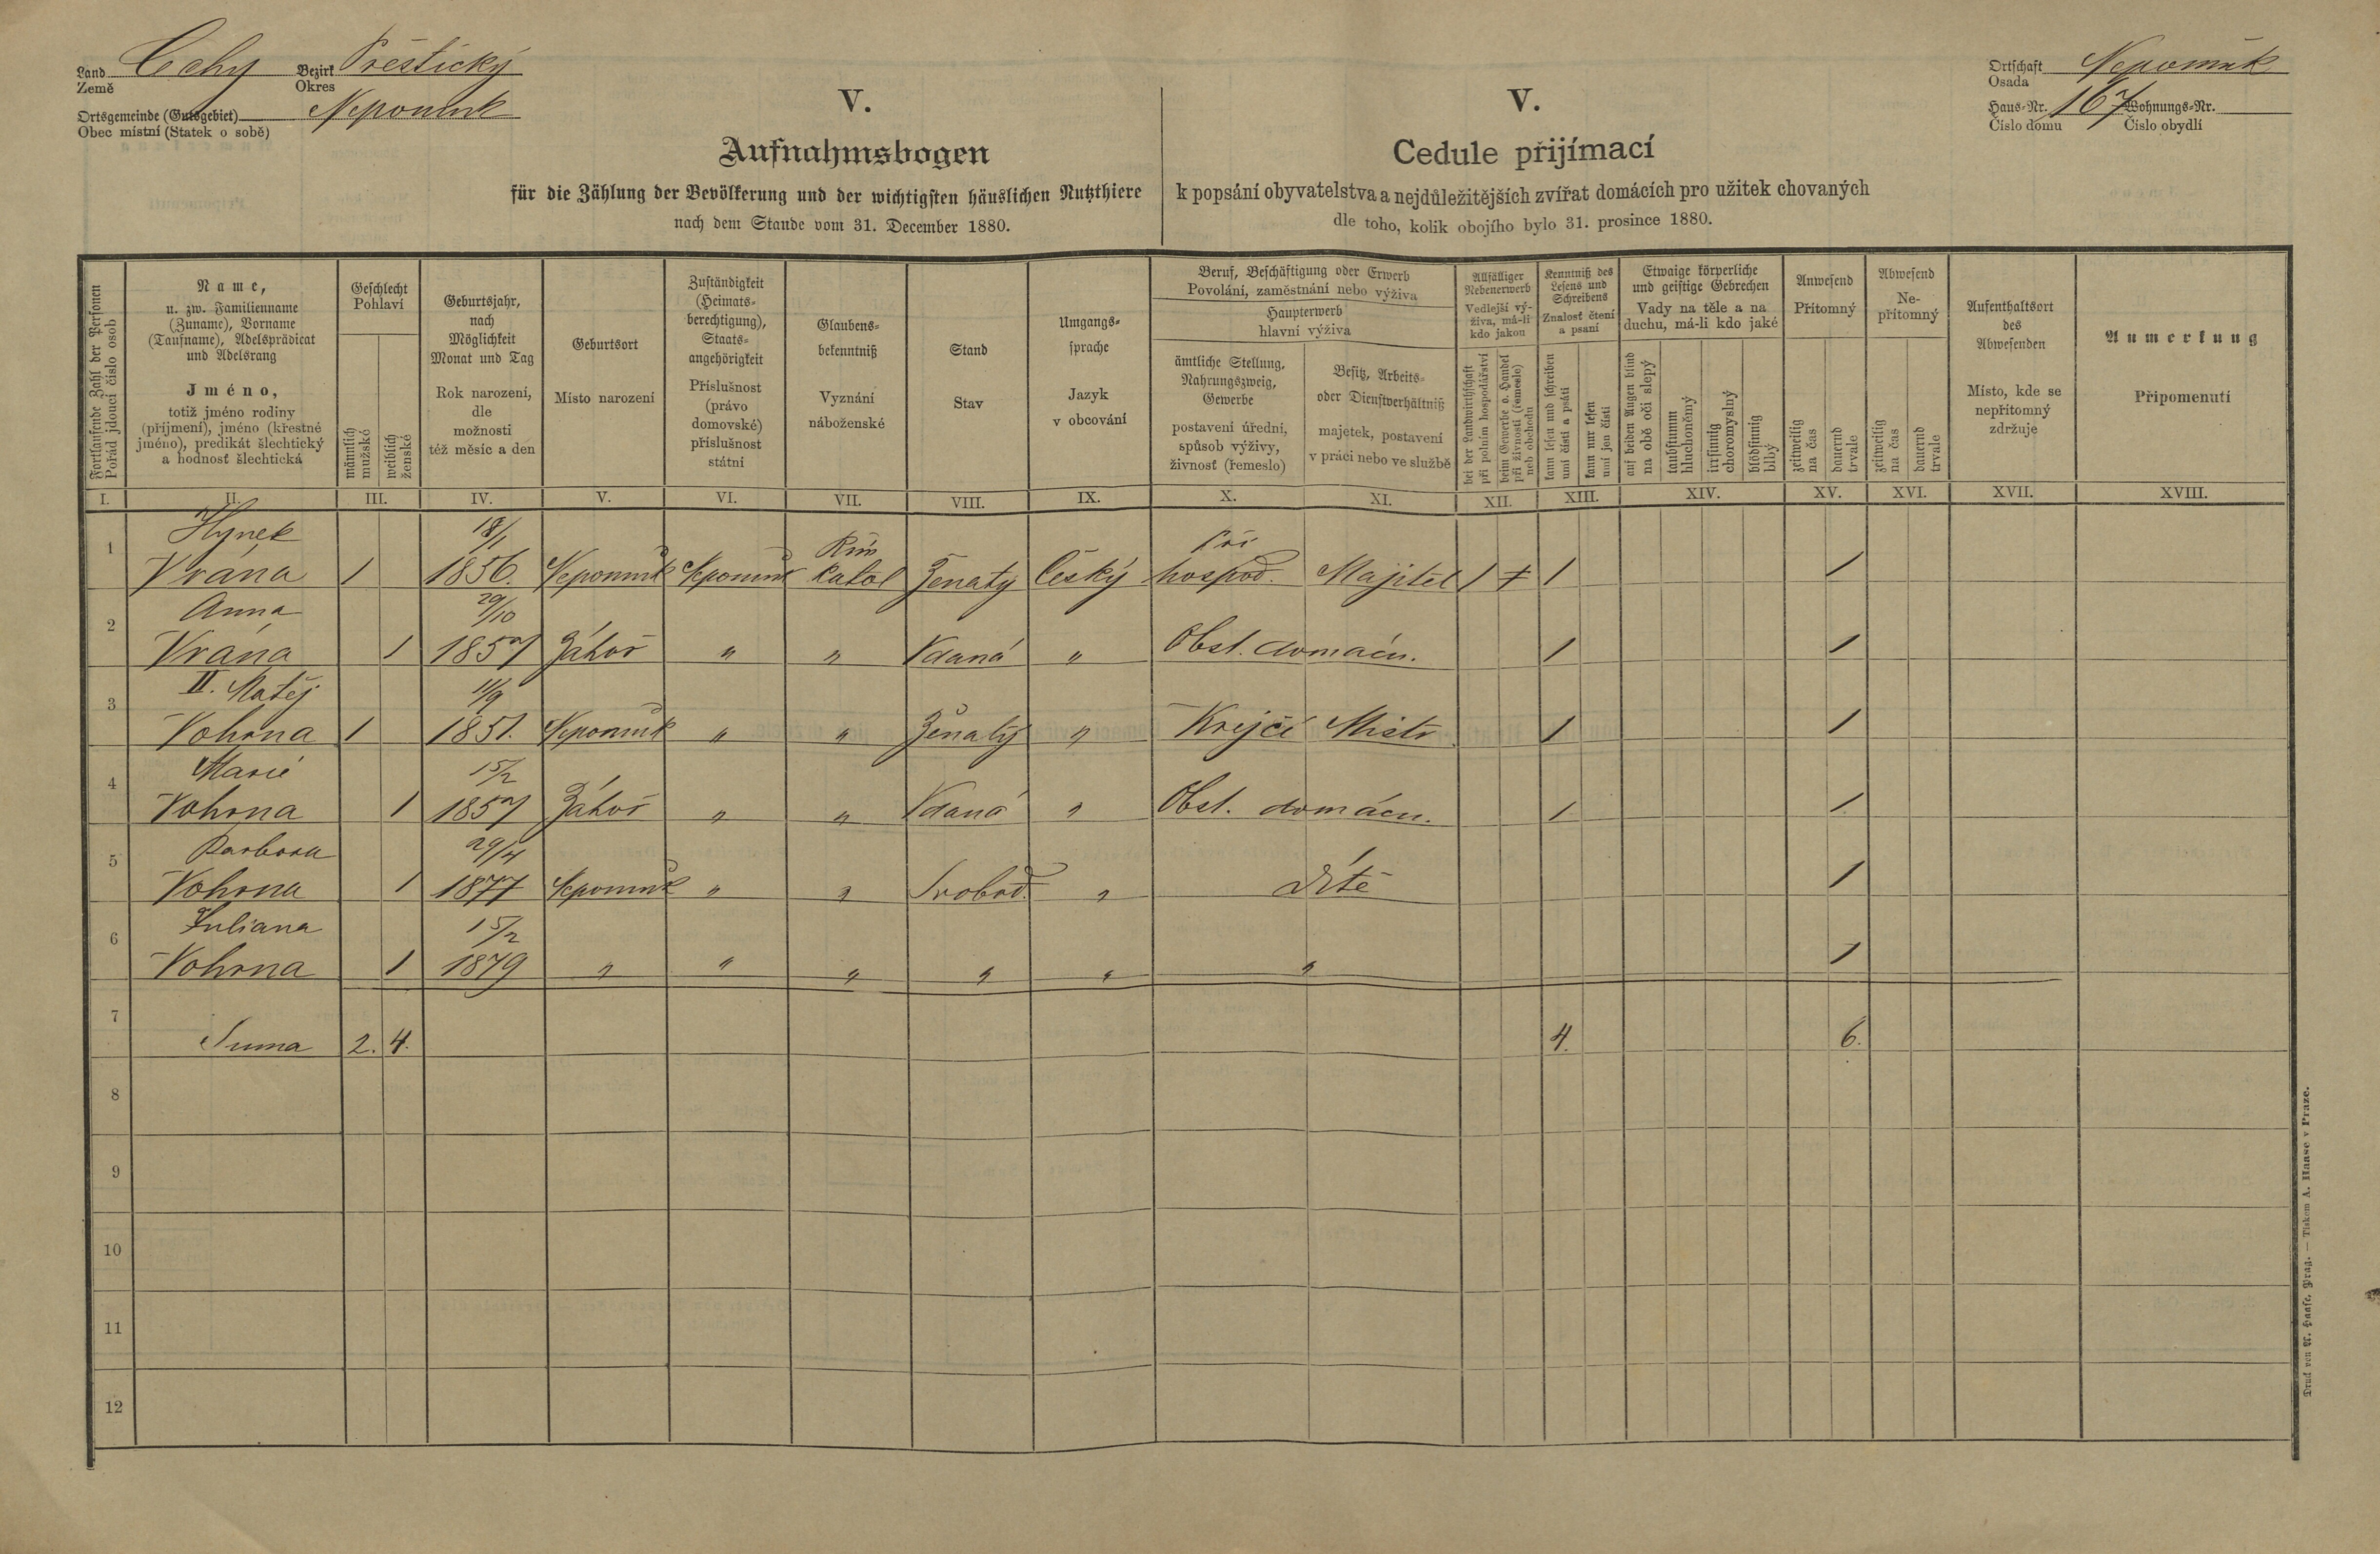 Land Čechy Bezirk Přeštický
Země Okres
Ortsgemeinde (Gutsgebiet) Nepomuk
Obec místní (Statek o sobě)
Ortschaft Nepomuk
Osada
Haus-Nr. 167 Wohnungs-Nr.
Číslo domu Číslo obydlí
V.
Aufnahmsbogen
für die Zählung der Bevölkerung und der wichtigsten häuslichen Nutzthiere
nach dem Stande vom 31. December 1880.
V.
Cedule přijímací
k popsání obyvatelstva a nejdůležitějších zvířat domácích pro užitek chovaných
dle toho, kolik obojího bylo 31. prosince 1880.
Fortlaufende Zahl der Personen
Pořád jdoucí číslo osob
Name,
u. zw. Familienname
(Zuname), Vorname
(Taufname), Adelsprädicat
und Adelsrang
Jméno,
totiž jméno rodiny
(příjmení), jméno (křestné
jméno), predikát šlechtický
a hodnosť šlechtická
Geschlecht
Pohlaví
männlich
mužské
weiblich
ženské
Geburtsjahr,
nach
Möglichkeit
Monat und Tag
Rok narození,
dle
možnosti
též měsíc a den
Geburtsort
Místo narození
Zuständigkeit
(Heimats-
berechtigung),
Staats-
angehörigkeit
Příslušnost
(právo
domovské)
příslušnost
státní
Glaubens-
bekenntniß
Vyznání
náboženské
Stand
Stav
Umgangs-
sprache
Jazyk
v obcování
Beruf, Beschäftigung oder Erwerb
Povolání, zaměstnání nebo výživa
Haupterwerb
hlavní výživa
ämtliche Stellung,
Nahrungszweig,
Gewerbe
postavení úřední,
spůsob výživy,
živnosť (řemeslo)
Besitz, Arbeits-
oder Dienstverhältniß
majetek, postavení
v práci nebo ve službě
Allfälliger
Nebenerwerb
Vedlejší vý-
živa, má-li
kdo jakou
bei der Landwirthschaft
při polním hospodářství
beim Gewerbe o. Handel
při živnosti (řemesle)
neb obchodu
Kenntniß des
Lesens und
Schreibens
Znalosť čtení
a psaní
kann lesen und schreiben
umí čísti a psáti
kann nur lesen
umí jen čísti
Etwaige körperliche
und geistige Gebrechen
Vady na těle a na
duchu, má-li kdo jaké
auf beiden Augen blind
na obě oči slepý
taubstumm
hluchoněmý
irrsinnig
choromyslný
blödsinnig
blbý
Anwesend
Přítomný
zeitweilig
na čas
dauernd
trvale
Abwesend
Ne-
přítomný
zeitweilig
na čas
dauernd
trvale
Aufenthaltsort
des
Abwesenden
Místo, kde se
nepřítomný
zdržuje
Anmerkung
Připomenutí
I. II. III. IV. V. VI. VII. VIII. IX. X. XI. XII. XIII. XIV. XV. XVI. XVII. XVIII.
Hynek 18/1 Řím Při
1 Vrána 1 1856. Nepomuk Nepomuk katol Ženatý Český hospod. Majitel 1 1 1
Anna 29/10
2 Vrána 1 1857 Záhoř " " Vdaná " Obst. domácn. 1 1
II. Matěj 11/9
3 Vohrna 1 1851. Nepomuk " " Ženatý " Krejčí Mistr 1 1
Marie 15/2
4 Vohrna 1 1857 Záhoř " " Vdaná " Obst. domácn. 1 1
Barbora 29/4
5 Vohrna 1 1877 Nepomuk " " Svobod. " Dítě 1
Juliana 15/2
6 Vohrna 1 1879 " " " " " " 1
7 Suma 2. 4. 4. 6.
8
9
10
11
12
Druck von A. Haase, Prag. — Tiskem A. Haase v Praze.